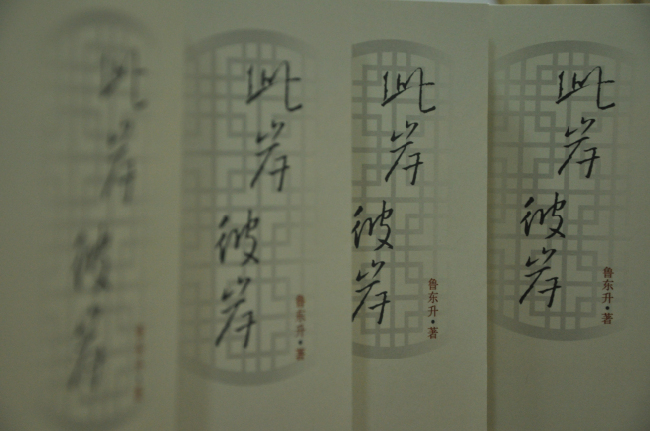 此岸
彼岸
鲁东升·著
此岸
彼岸
鲁东升·著
此岸
彼岸
鲁东升·著
此岸
彼岸
鲁东升·著